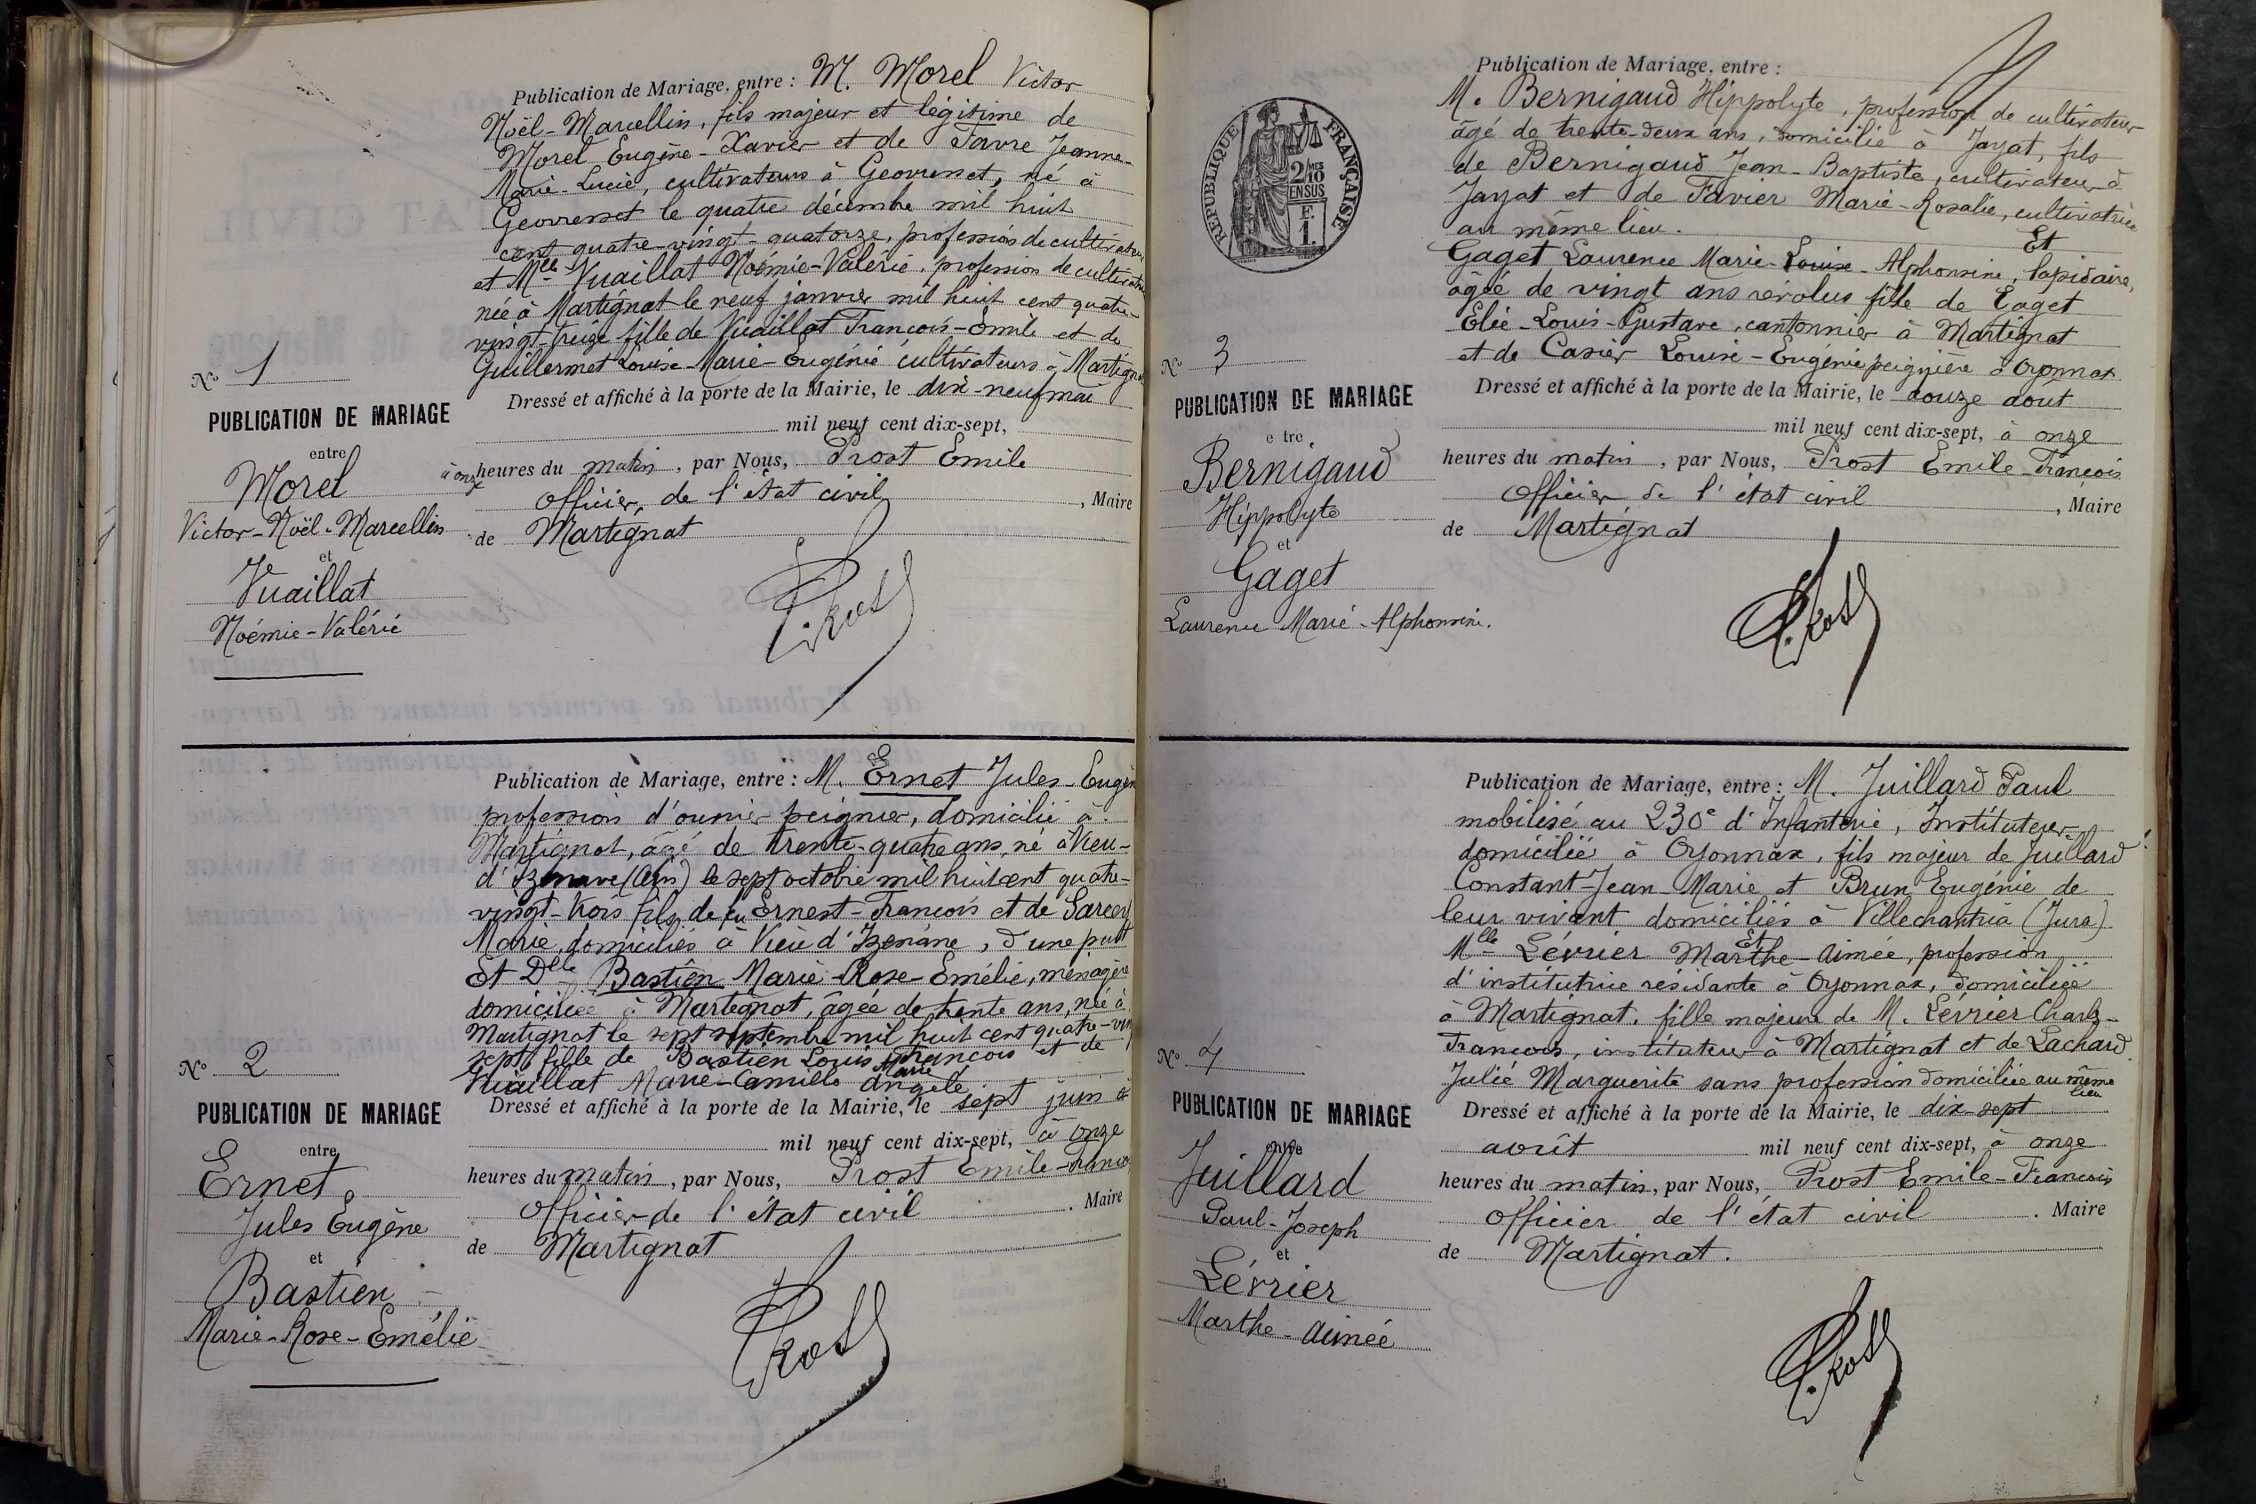 Publication de Mariage, entre : M. Morel Victor
Noël-Marcellin, fils majeur et légitime de
Morel Eugène-Xavier et de Favre Jeanne-
Marie-Lucie, cultivateurs à Geovresset, né à
Geovresset le quatre décembre mil huit
cent quatre-vingt-quatorze, profession de cultivateur
et Mlle Vuaillat Noémie-Valérie, profession de cultivatrice
née à Martignat le neuf janvier mil huit cent quatre-
vingt-treize fille de Vuaillat François-Emile et de
Guillermet Louise-Marie-Eugénie cultivateurs à Martignat
Dressé et affiché à la porte de la Mairie, le dix-neuf mai
mil neuf cent dix-sept,
à onze heures du matin, par Nous, Prost Emile
officier de l'état civil, Maire
de Martignat
E. Prost
No 1
PUBLICATION DE MARIAGE
entre
Morel
Victor-Noël-Marcellin
et
Vuaillat
Noémie-Valérie
Publication de Mariage, entre : M. Ernet Jules-Eugène
profession d'ouvrier peignier, domicilié à
Martignat, âgé de trente-quatre ans, né à Vieu-
d'Izenave (Ain) le sept octobre mil huit cent quatre-
vingt-trois fils de feu Ernest-François et de Sarcey
Marie, domiciliés à Vieu d'Izenave, d'une part
Et Dlle Bastien Marie-Rose-Emélie, ménagère
domiciliée à Martignat, âgée de trente ans, née à
Martignat le sept septembre mil huit cent quatre-vingt
sept fille de Bastien Louis François et de
Vuaillat Marie-Camille Marie Angèle
Dressé et affiché à la porte de la Mairie, le sept juin à
mil neuf cent dix-sept, à onze
heures du matin, par Nous, Prost Emile-François
officier de l'état civil. Maire
de Martignat
E. Prost
No 2
PUBLICATION DE MARIAGE
entre
Ernet
Jules Eugène
et
Bastien
Marie-Rose-Emélie
Publication de Mariage, entre :
M. Bernigaud Hippolyte, profession de cultivateur
âgé de trente-deux ans, domicilié à Jayat, fils
de Bernigaud Jean-Baptiste, cultivateur à
Jayat et de Favier Marie-Rosalie, cultivatrice
au même lieu.
Et
Gaget Laurence Marie-Louise-Alphonsine, lapidaire,
âgée de vingt ans révolus fille de Gaget
Elie-Louis-Gustave, cantonnier à Martignat
et de Casier Louise-Eugénie peignière à Oyonnax
Dressé et affiché à la porte de la Mairie, le douze août
mil neuf cent dix-sept, à onze
heures du matin, par Nous, Prost Emile-François
officier de l'état civil, Maire
de Martignat
E. Prost
RÉPUBLIQUE FRANÇAISE
2 MES 2/10 EN SUS
F. 1.
No 3
PUBLICATION DE MARIAGE
e tre
Bernigaud
Hippolyte
et
Gaget
Laurence Marie-Alphonsine.
Publication de Mariage, entre : M. Juillard Paul
mobilisé au 230e d'Infanterie, Instituteur
domicilié à Oyonnax, fils majeur de Juillard
Constant-Jean-Marie et Brun Eugénie de
leur vivant domiciliés à Villechantria (Jura)
Et
Mlle Lévrier Marthe-Aimée, profession
d'institutrice résidante à Oyonnax, domiciliée
à Martignat, fille majeure de M. Lévrier Charles-
François, instituteur à Martignat et de Lachard
Julie Marguerite sans profession domiciliée au même
lieu
Dressé et affiché à la porte de la Mairie, le dix-sept
août mil neuf cent dix-sept, à onze
heures du matin, par Nous, Prost Emile-François
officier de l'état civil. Maire
de Martignat.
E. Prost
No 4
PUBLICATION DE MARIAGE
entre
Juillard
Paul-Joseph
et
Lévrier
Marthe-Aimée